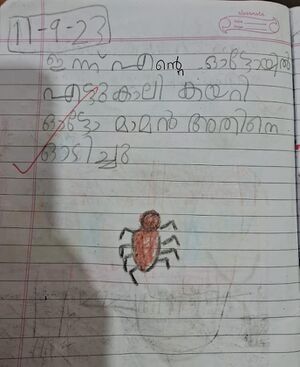 11-9-23
ഇന്ന് എന്റെ ഓട്ടോയിൽ
എട്ടുകാലി കയറി
ഓട്ടോ മാമൻ അതിനെ
ഓടിച്ചു